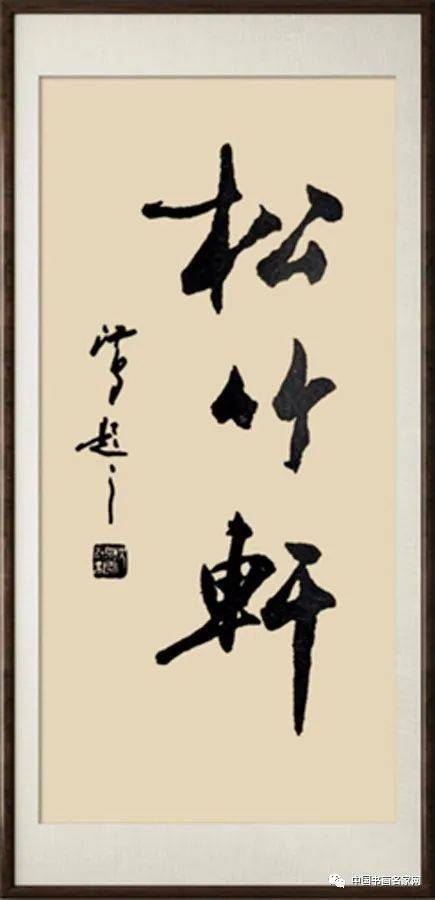 松竹軒
题之
中国书画名家网